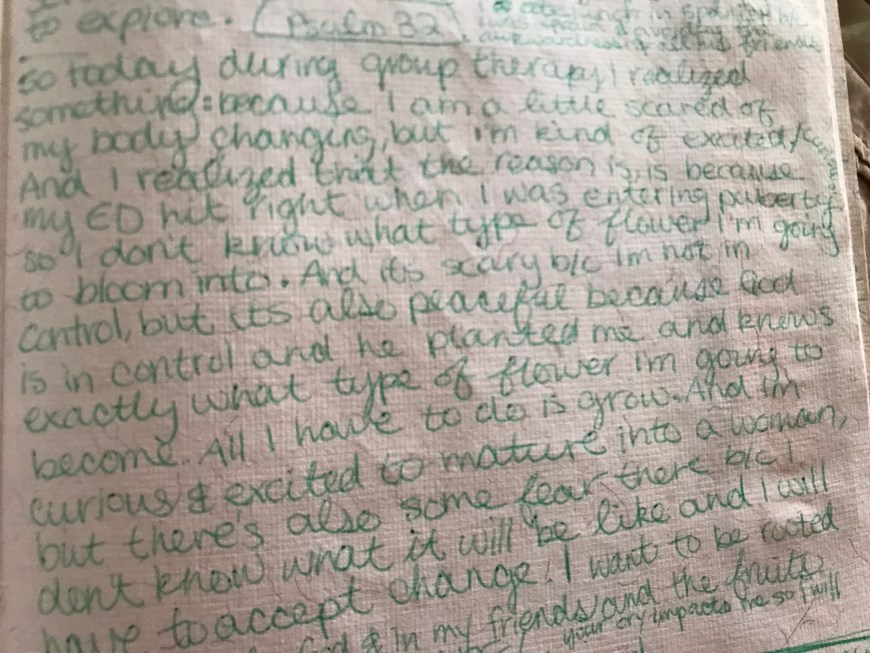 to explore. Psalm 32
so today during group therapy I realized
something: because I am a little scared of
my body changing, but i'm kind of excited/curious
And I realized that the reason is, is because
my ED hit right when I was entering puberty
so I don't know what type of flower I'm going
to bloom into. And it's scary b/c im not in
control, but its also peaceful because God
is in control and he planted me and knows
exactly what type of flower i'm going to
become. All I have to do is grow. And i'm
curious & excited to mature into a woman,
but there's also some fear there b/c I
don't know what it will be like and I will
have to accept change. I want to be rooted
God & in my friends and the fruits
your cry impacts me so I will